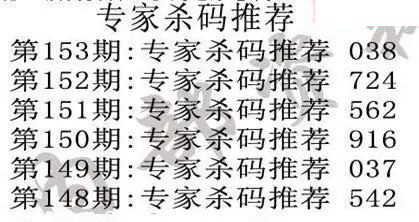 专家杀码推荐
第153期:专家杀码推荐 038
第152期:专家杀码推荐 724
第151期:专家杀码推荐 562
第150期:专家杀码推荐 916
第149期:专家杀码推荐 037
第148期:专家杀码推荐 542